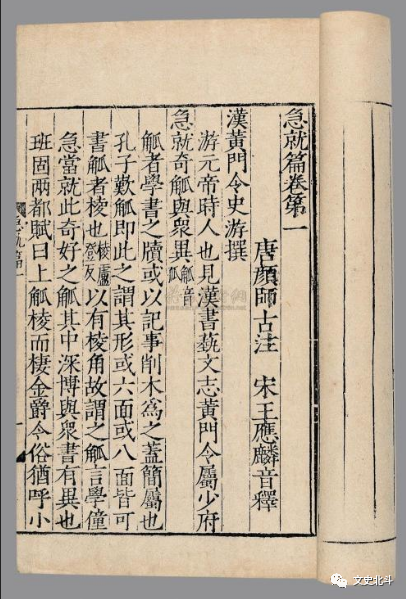 急就篇卷第一
唐顏師古注 宋王應麟音釋
漢黃門令史游撰
游元帝時人也見漢書蓺文志黃門令屬少府
急就奇觚與衆異觚音孤
觚者學書之牘或以記事削木爲之蓋簡屬也
孔子歎觚即此之謂其形或六面或八面皆可
書觚者棱也棱盧登反以有棱角故謂之觚言學僮
急當就此奇好之觚其中深博與衆書有異也
班固兩都賦曰上觚棱而棲金爵今俗猶呼小
文史北斗